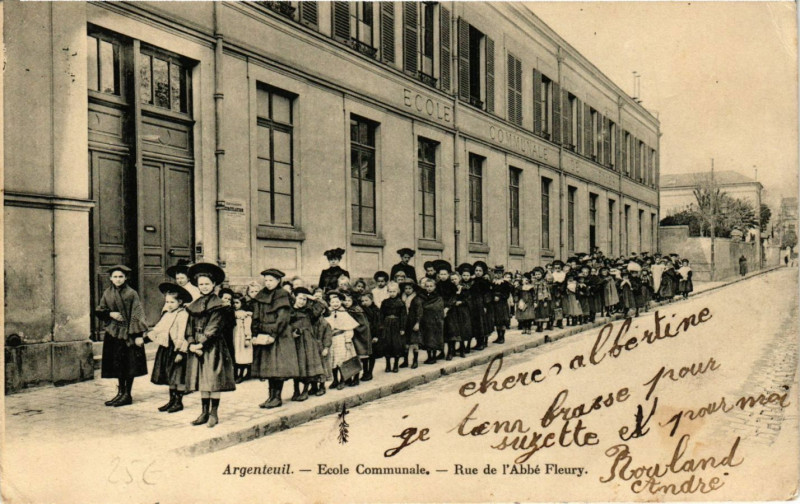 ECOLE COMMUNALE DE
cherc albertine
je tenn brasse pour
suzette et pour moi
Rowland
André
Argenteuil. — Ecole Communale. — Rue de l'Abbé Fleury.
25€